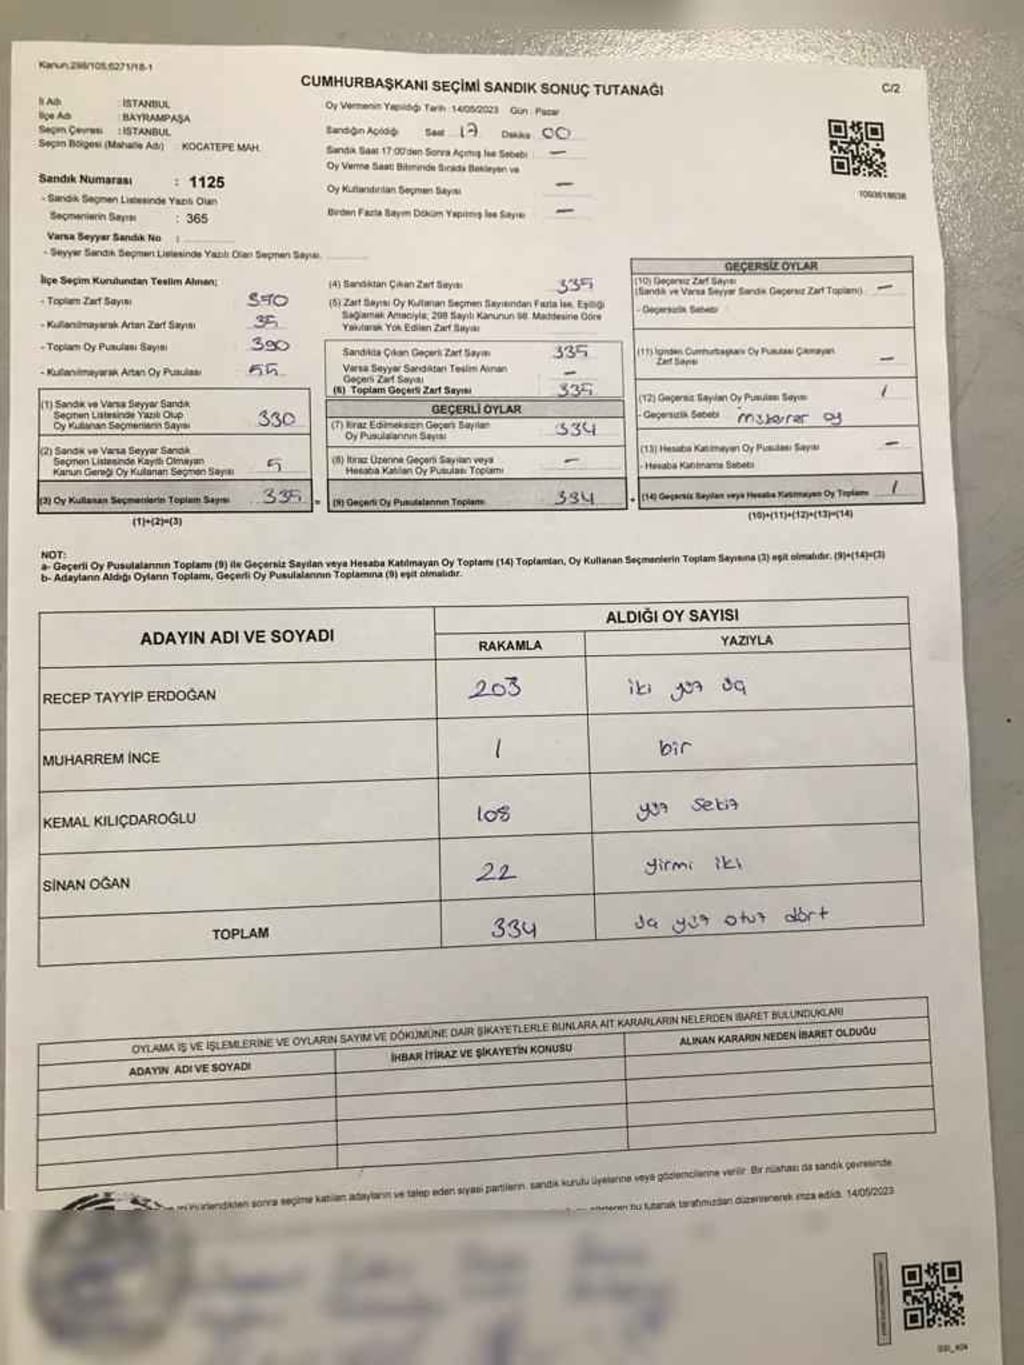 Kanun:298/105,6271/18-1
CUMHURBAŞKANI SEÇİMİ SANDIK SONUÇ TUTANAĞI
C/2
İl Adı : İSTANBUL
İlçe Adı : BAYRAMPAŞA
Seçim Çevresi : İSTANBUL
Seçim Bölgesi (Mahalle Adı) : KOCATEPE MAH.
Sandık Numarası : 1125
- Sandık Seçmen Listesinde Yazılı Olan
Seçmenlerin Sayısı : 365
Varsa Seyyar Sandık No :
- Seyyar Sandık Seçmen Listesinde Yazılı Olan Seçmen Sayısı
Oy Vermenin Yapıldığı Tarih : 14/05/2023 Gün : Pazar
Sandığın Açıldığı Saat 17 Dakika 00
Sandık Saat 17:00'den Sonra Açılmış İse Sebebi —
Oy Verme Saati Bitiminde Sırada Bekleyen ve
Oy Kullandırılan Seçmen Sayısı —
Birden Fazla Sayım Döküm Yapılmış İse Sayısı —
İlçe Seçim Kurulundan Teslim Alınan;
- Toplam Zarf Sayısı 390
- Kullanılmayarak Artan Zarf Sayısı 35
- Toplam Oy Pusulası Sayısı 390
- Kullanılmayarak Artan Oy Pusulası 55
(1) Sandık ve Varsa Seyyar Sandık
Seçmen Listesinde Yazılı Olup
Oy Kullanan Seçmenlerin Sayısı 330
(2) Sandık ve Varsa Seyyar Sandık
Seçmen Listesinde Kayıtlı Olmayan
Kanun Gereği Oy Kullanan Seçmen Sayısı 5
(3) Oy Kullanan Seçmenlerin Toplam Sayısı 335
(1)+(2)=(3)
(4) Sandıktan Çıkan Zarf Sayısı 335
(5) Zarf Sayısı Oy Kullanan Seçmen Sayısından Fazla İse, Eşitliği
Sağlamak Amacıyla; 298 Sayılı Kanunun 98. Maddesine Göre
Yakılarak Yok Edilen Zarf Sayısı
Sandıkta Çıkan Geçerli Zarf Sayısı 335
Varsa Seyyar Sandıktan Teslim Alınan
Geçerli Zarf Sayısı —
(6) Toplam Geçerli Zarf Sayısı 335
GEÇERLİ OYLAR
(7) İtiraz Edilmeksizin Geçerli Sayılan
Oy Pusulalarının Sayısı 334
(8) İtiraz Üzerine Geçerli Sayılan veya
Hesaba Katılan Oy Pusulası Toplamı —
(9) Geçerli Oy Pusulalarının Toplamı 334
GEÇERSİZ OYLAR
(10) Geçersiz Zarf Sayısı
(Sandık ve Varsa Seyyar Sandık Geçersiz Zarf Toplamı) —
- Geçersizlik Sebebi
(11) İçinden Cumhurbaşkanı Oy Pusulası Çıkmayan
Zarf Sayısı —
(12) Geçersiz Sayılan Oy Pusulası Sayısı 1
- Geçersizlik Sebebi mükerrer oy
(13) Hesaba Katılmayan Oy Pusulası Sayısı —
- Hesaba Katılmama Sebebi
(14) Geçersiz Sayılan veya Hesaba Katılmayan Oy Toplamı 1
(10)+(11)+(12)+(13)=(14)
NOT:
a- Geçerli Oy Pusulalarının Toplamı (9) ile Geçersiz Sayılan veya Hesaba Katılmayan Oy Toplamı (14) Toplamları, Oy Kullanan Seçmenlerin Toplam Sayısına (3) eşit olmalıdır. (9)+(14)=(3)
b- Adayların Aldığı Oyların Toplamı, Geçerli Oy Pusulalarının Toplamına (9) eşit olmalıdır.
ADAYIN ADI VE SOYADI
ALDIĞI OY SAYISI
RAKAMLA YAZIYLA
RECEP TAYYİP ERDOĞAN 203 iki yüz üç
MUHARREM İNCE 1 bir
KEMAL KILIÇDAROĞLU 108 yüz sekiz
SİNAN OĞAN 22 yirmi iki
TOPLAM 334 üç yüz otuz dört
OYLAMA İŞ VE İŞLEMLERİNE VE OYLARIN SAYIM VE DÖKÜMÜNE DAİR ŞİKAYETLERLE BUNLARA AİT KARARLARIN NELERDEN İBARET BULUNDUKLARI
ADAYIN ADI VE SOYADI İHBAR İTİRAZ VE ŞİKAYETİN KONUSU ALINAN KARARIN NEDEN İBARET OLDUĞU
sonra seçime katılan adayların ve talep eden siyasi partilerin, sandık kurulu üyelerine veya gözlemcilerine verilir. Bir nüshası da sandık çevresinde
bu tutanak tarafımızdan düzenlenerek imza edildi. 14/05/2023